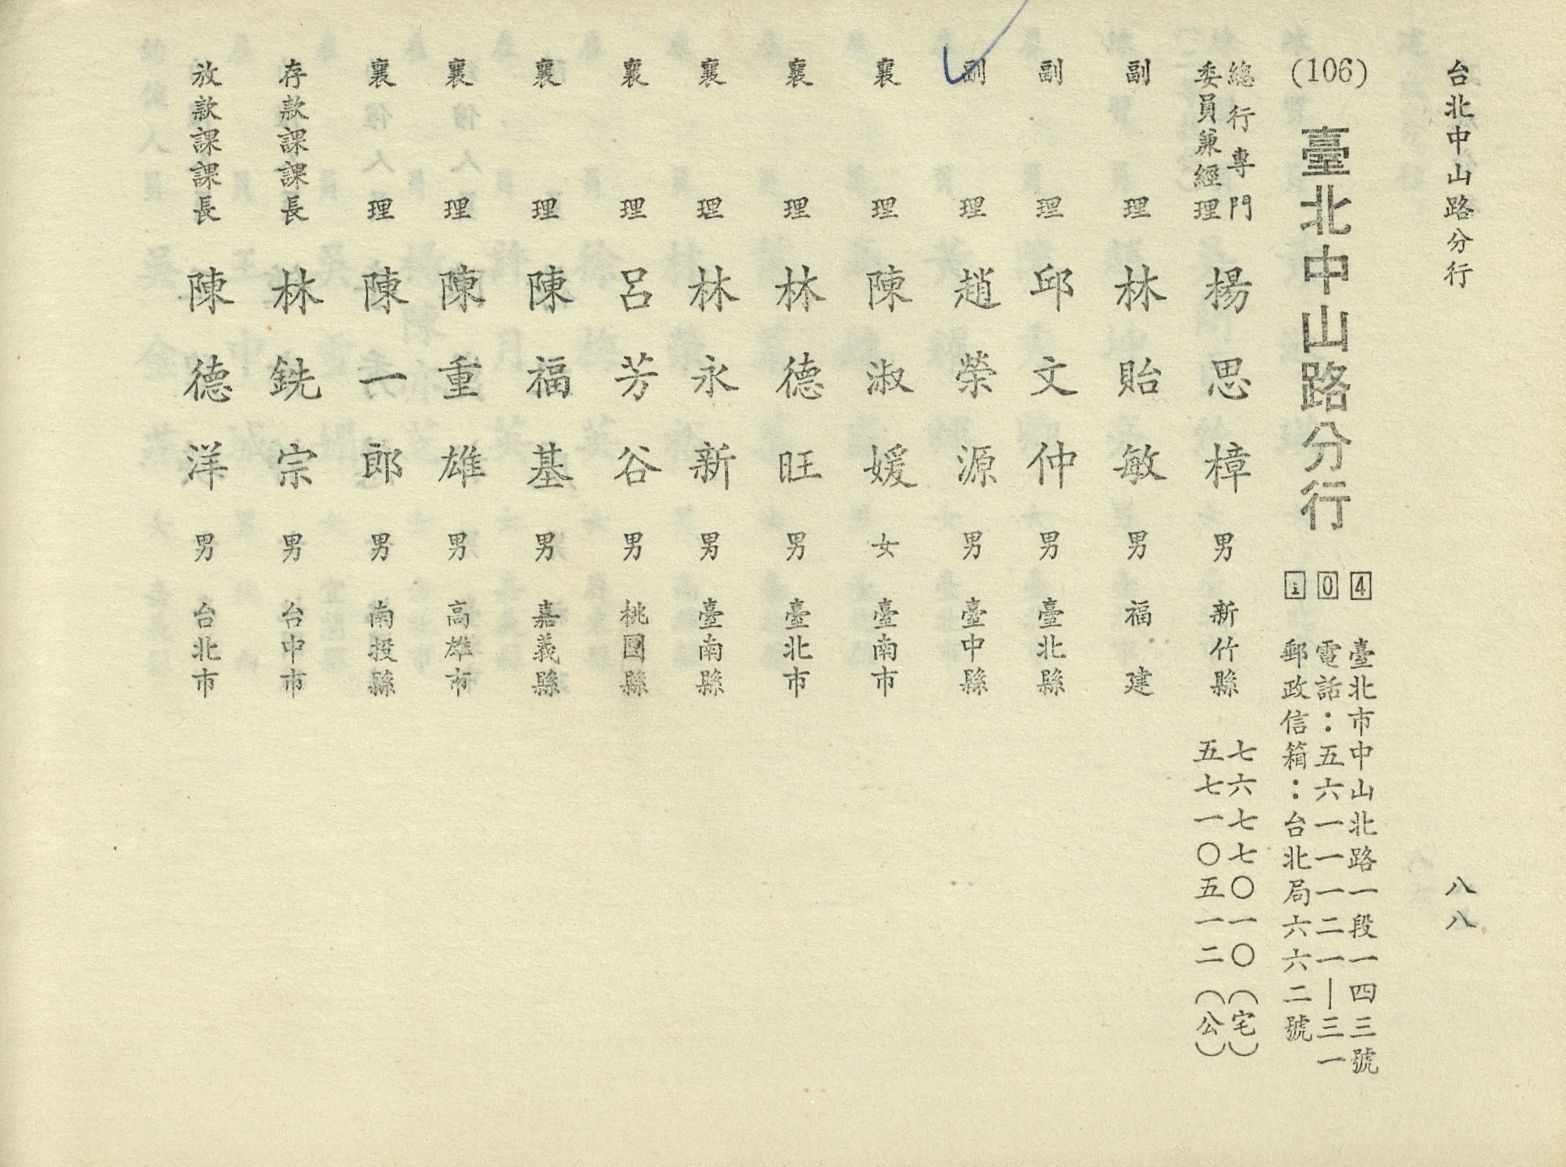 台北中山路分行
八八
(106) 臺北中山路分行
4 臺北市中山北路一段一四三號
0 電話：五六一一一二一—三一
i 郵政信箱：台北局六六二號
總行專門委員兼經理 楊思樟 男 新竹縣 七六七七〇一〇（宅）
五七一〇五一二（公）
副理 林貽敏 男 福建
副理 邱文仲 男 臺北縣
副理 趙榮源 男 臺中縣
襄理 陳淑媛 女 臺南市
襄理 林德旺 男 臺北市
襄理 林永新 男 臺南縣
襄理 呂芳谷 男 桃園縣
襄理 陳福基 男 嘉義縣
襄理 陳重雄 男 高雄市
襄理 陳一郎 男 南投縣
存款課課長 林銑宗 男 台中市
放款課課長 陳德洋 男 台北市